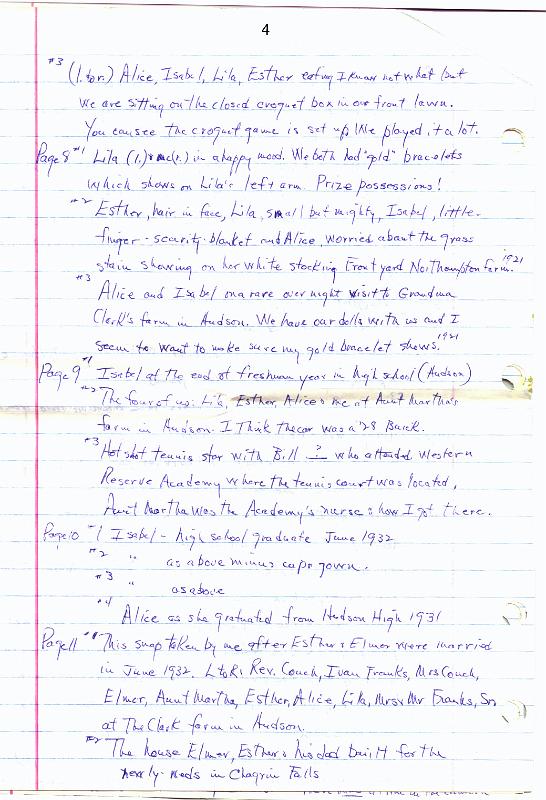 4
#3 (l. to r.) Alice, Isabel, Lila, Esther eating I know not what but
we are sitting on the closed croquet box in our front lawn.
You can see the croquet game is set up. We played it a lot.
Page 8 #1 Lila (l.) & me (r.) in a happy mood. We both had "gold" bracelets
which shows on Lila's left arm. Prize possessions!
#2 Esther, hair in face, Lila, small but mighty, Isabel, little-
finger-security-blanket and Alice, worried about the grass
stain showing on her white stocking. Front yard Northampton farm. 1921
#3 Alice and Isabel on a rare over night visit to Grandma
Clark's farm in Hudson. We have our dolls with us and I
seem to want to make sure my gold bracelet shows. 1921
Page 9 #1 Isabel at the end of freshman year in high school (Hudson)
#2 The four of us: Lila, Esther, Alice & me at Aunt Martha's
farm in Hudson. I think the car was a '28 Buick.
#3 Hot shot tennis star with Bill ? who attended Western
Reserve Academy where the tennis court was located,
Aunt Martha was the Academy's nurse & how I got there.
Page 10 #1 Isabel - high school graduate June 1932
#2 " as above minus cap & gown.
#3 " as above
#4 Alice as she gratuated from Hudson High 1931
Page 11 #1 This snap taken by me after Esther & Elmer were married
in June 1932. L to R: Rev. Couch, Ivan Franks, Mrs Couch,
Elmer, Aunt Martha, Esther, Alice, Lila, Mrs & Mr Franks, Sr.
at The Clark farm in Hudson.
#2 The house Elmer, Esther & his dad built for the
newly-weds in Chagrin Falls